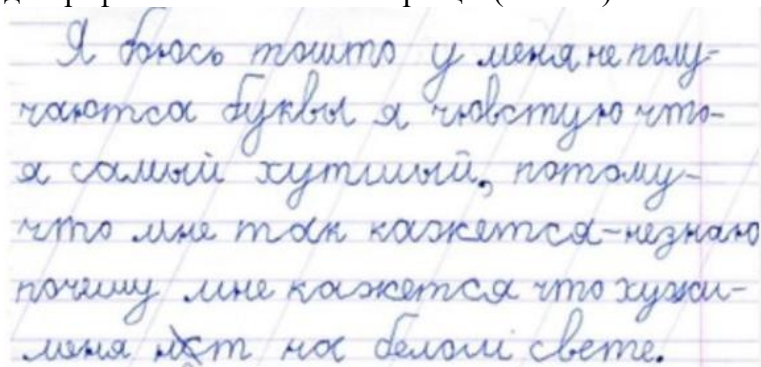 Я боюсь тошто у меня не полу-
чаютса буквы я чювстую что-
я самый хутший, потому-
что мне так кажется-незнаю
почему мне кажется что хужи-
меня нет на белом свете.